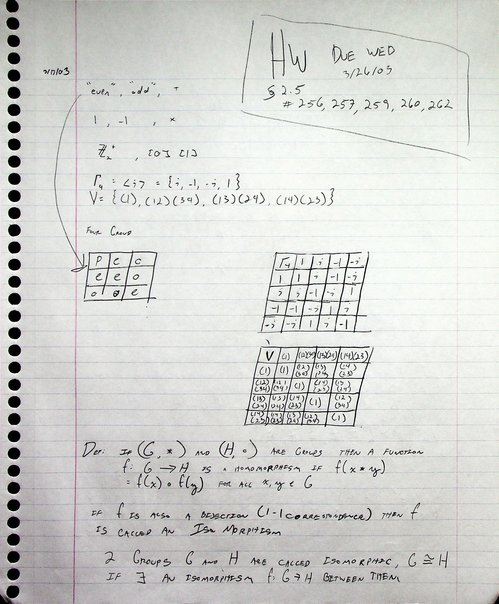 HW DUE WED
3/26/03
§ 2.5
# 256, 257, 259, 260, 262
"even", "odd", +
1, -1, ×
, [0] [1]
Γ₄ = <i> = {i, -1, -i, 1}
V = {(1), (12)(34), (13)(24), (14)(23)}
FOUR GROUP
P e o
e e o
o o e
Γ₄ 1 i -1 -i
1 1 i -1 -i
i i -1 -i 1
-1 -1 -i 1 i
-i -i 1 i -1
V (1) (12)(34) (13)(24) (14)(23)
(1) (1) (12)(34) (13)(24) (14)(23)
(12)(34) (12)(34) (1) (14)(23) (13)(24)
(13)(24) (13)(24) (14)(23) (1) (12)(34)
(14)(23) (14)(23) (13)(24) (12)(34) (1)
DEF: IF (G, *) AND (H, ∘) ARE GROUPS THEN A FUNCTION
f: G → H IS A HOMOMORPHISM IF f(x * y)
= f(x) ∘ f(y) FOR ALL x, y ∈ G
IF f IS ALSO A BIJECTION (1-1 CORRESPONDENCE) THEN f
IS CALLED AN ISOMORPHISM
2 GROUPS G AND H ARE CALLED ISOMORPHIC, G ≅ H
IF ∃ AN ISOMORPHISM f: G → H BETWEEN THEM